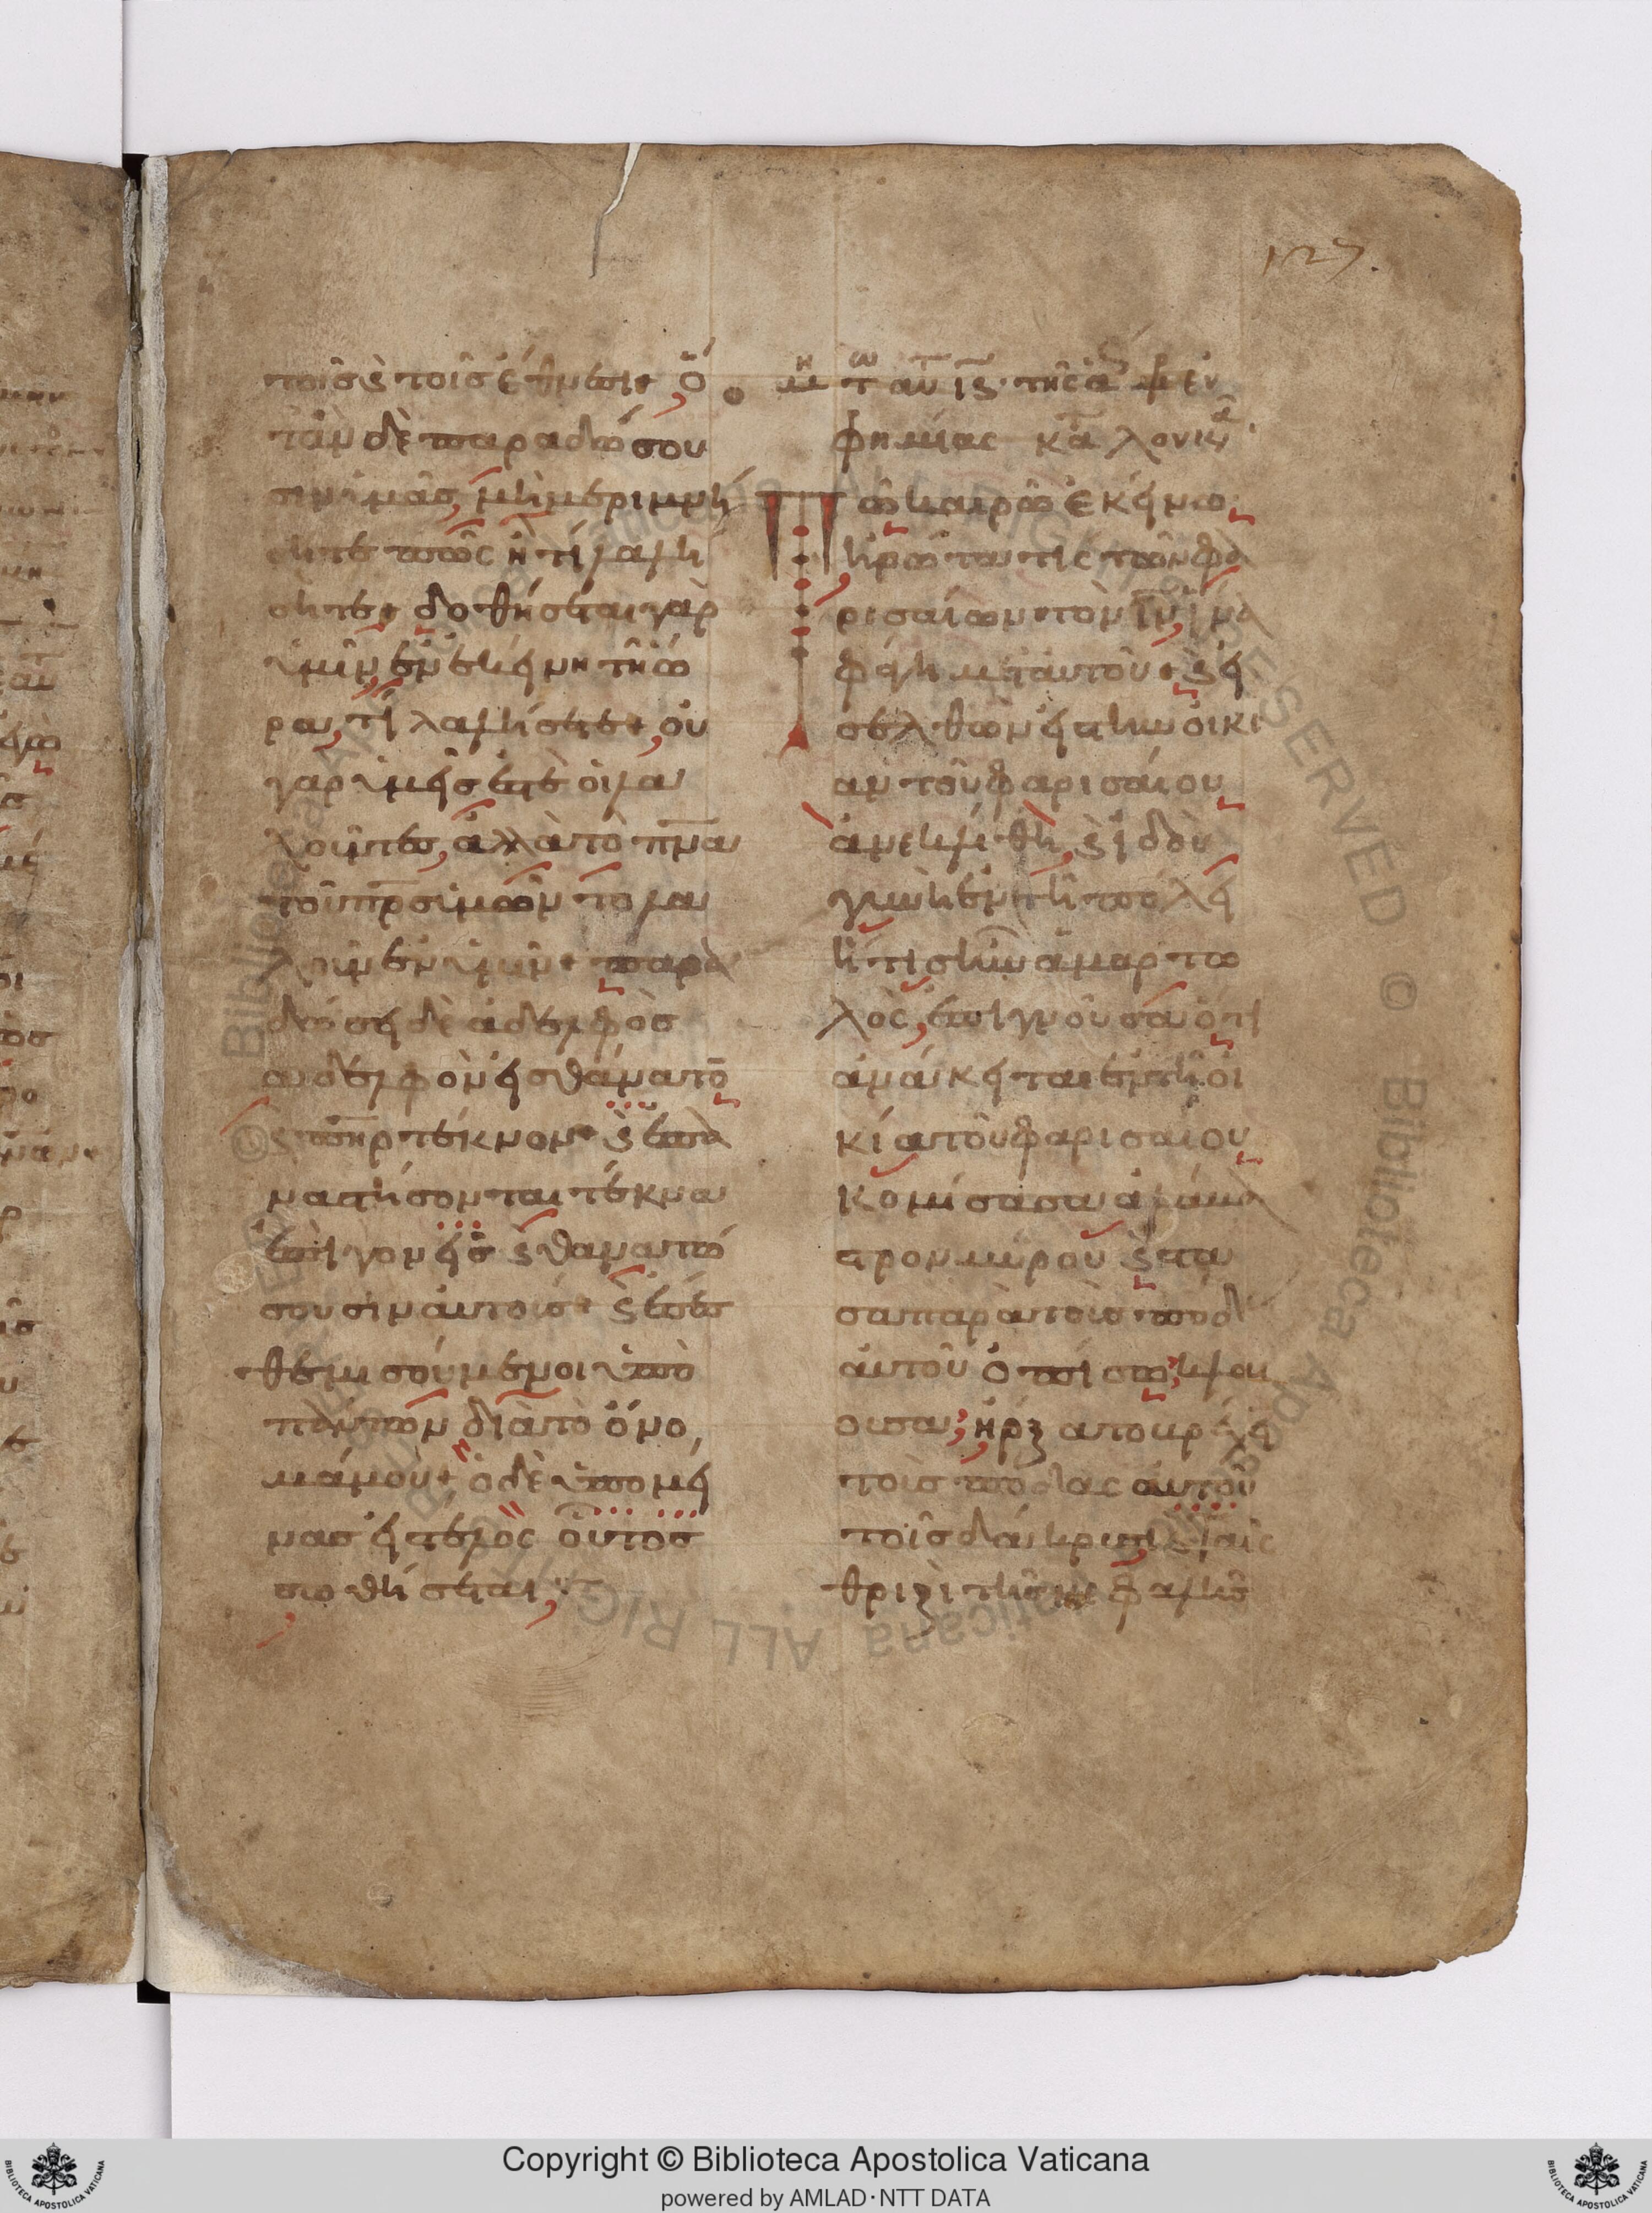 127.
τοῖς ϗ τοῖς ἔθνεσι+ ὅ
τὰν δὲ παραδώσου
σιν ὑμᾶς, μὴ μεριμνή
σητε πῶς ἢ τί λαλή
σητε+ δοθήσεται γὰρ
ὑμῖν, ἐν ἐκείνη τῆ ὥ
ρα, τί λαλήσετε+ οὐ
γαρ ὑμεῖς ἐστὲ οἱ λα
λοῦντες, ἀλλὰ τὸ πν̅α
τοῦ πρ̅σ ὑμῶν τὸ λα
λοῦν ἐν ὑμῖν+ παρα
δώσει δὲ ἀδελφὸσ
αδελφὸν εἰς θάνατο̅
ϗ πατὴρ τέκνον+ ϗ ἐπα
ναστήσονται τέκνα
ἐπὶ γονεῖσ ϗ θανατώ
σουσιν αὐτοὺσ+ ϗ ἔσεσ
θε μισούμενοι ὑπὸ
πάντων διὰ τὸ ὄνο,
μά μου+ ὁ δὲ ὑπομεί
νας εἰς τέλος οὗτος
σωθήσεται,
φημίας
Τῶ καιρῶ ἐκείνω,
ἠρώτα τις τῶν φα
ρισαίων τὸν ιν̅, ἵνα
φάγη μετ αὐτοῦ+ ϗ εἰ
σελθὼν εἰς τὴν οἰκί
αν τοῦ φαρισαίου
ἀνεκλίθη, ϗ ἰδοὺ
γυνὴ ἐν τῆ πόλει
ἥτις ἦν ἁμαρτω
λὸς, ἐπιγνοῦσα ὅτι
ἀνάκειται ἐν τῆ οἰ
κία τοῦ φαρισαίου
κομίσασα ἀλάβα
στρον μύρου ϗ στα
σα παρὰ τοὺς πόδ
αὐτοῦ ὀπίσω, κλαι
ουσα, ἤρξατο βρέχει
τοὺς πόδας αὐτοῦ
τοῖς δάκρυσι ϗ ταῖς
θριξὶ τῆς κεφαλῆς
Copyright © Biblioteca Apostolica Vaticana
powered by AMLAD·NTT DATA